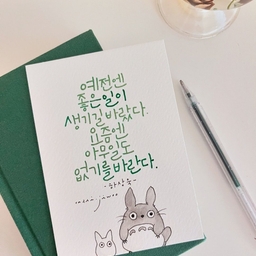 예전엔
좋은일이
생기길 바랐다.
요즘엔
아무일도
없기를바란다.
-하상욱-